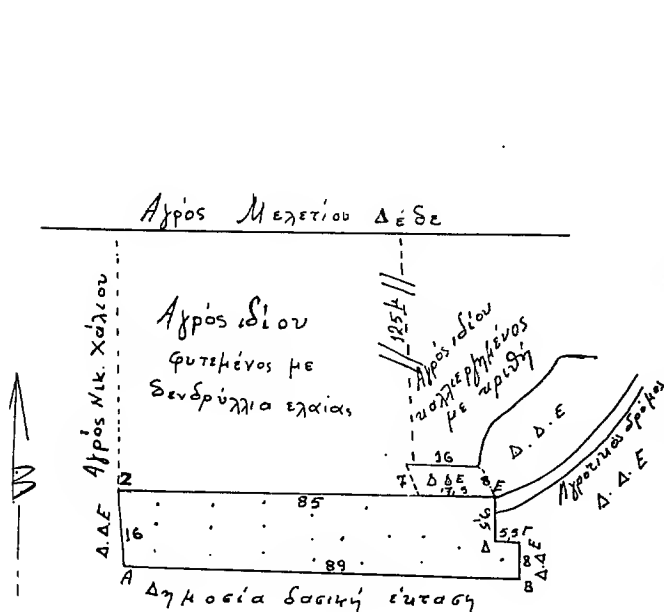 Αγρός Μελετίου Δέδε
Αγρός Νικ. Χάλιου
Αγρός ιδίου
φυτεμένος με
δενδρύλλια ελαίας
125μ
Αγρός ιδίου
καλλιεργημένος
με κριθή
Δ. Δ. Ε
Αγροτικός δρόμος
Δ. Δ. Ε
16
7
Δ Δ Ε
17,5
8
Ε
Ζ
85
Δ.Δ.Ε
16
9,5
Δ
5,5
Γ
8
Δ.Δ.Ε
Β
89
Α
Δημοσία δασική έκταση
Β